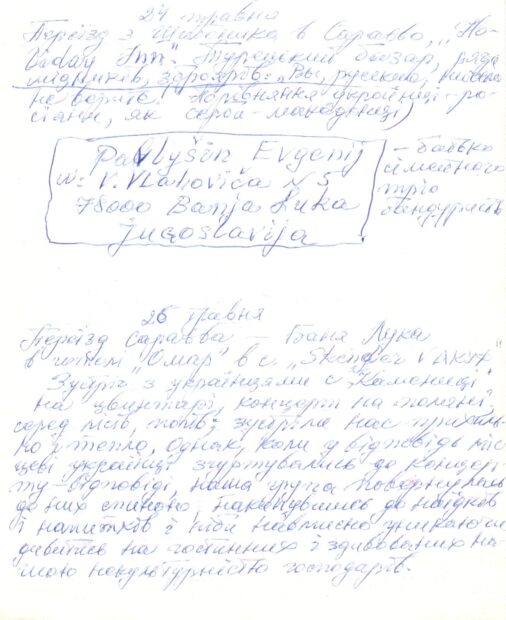 24 травня
Переїзд з Шибеника в Сараєво, „Ho-
liday Inn". Турецький базар, ряди
мідників,
не Порівняння українці-ро-
сіяни, як серби-македонці)
Pavlyšin Evgenij
ul. V. Vlahovića N 5
78000 Banja Luka
Jugoslavija
– батько
сімейного
тріо
бандуристів
25 травня
Переїзд Сараєво — Баня Лука
в готелі "Омар" в с. „Skender Vakuf"
Зустріч з українцями с. Каменниці
на цвинтарі, концерт на поляні,
серед лісів, потів: зустріли нас прихиль-
но і тепло, однак, коли у відповідь міс-
цеві українці згуртувались до концер-
ту-відповіді, наша група повернулась
до них спиною, накинувшись до наїдків
і напитків і ніби навмисно уникаючи
дивитись на гостинних і здивованих на-
шою некультурністю господарів.